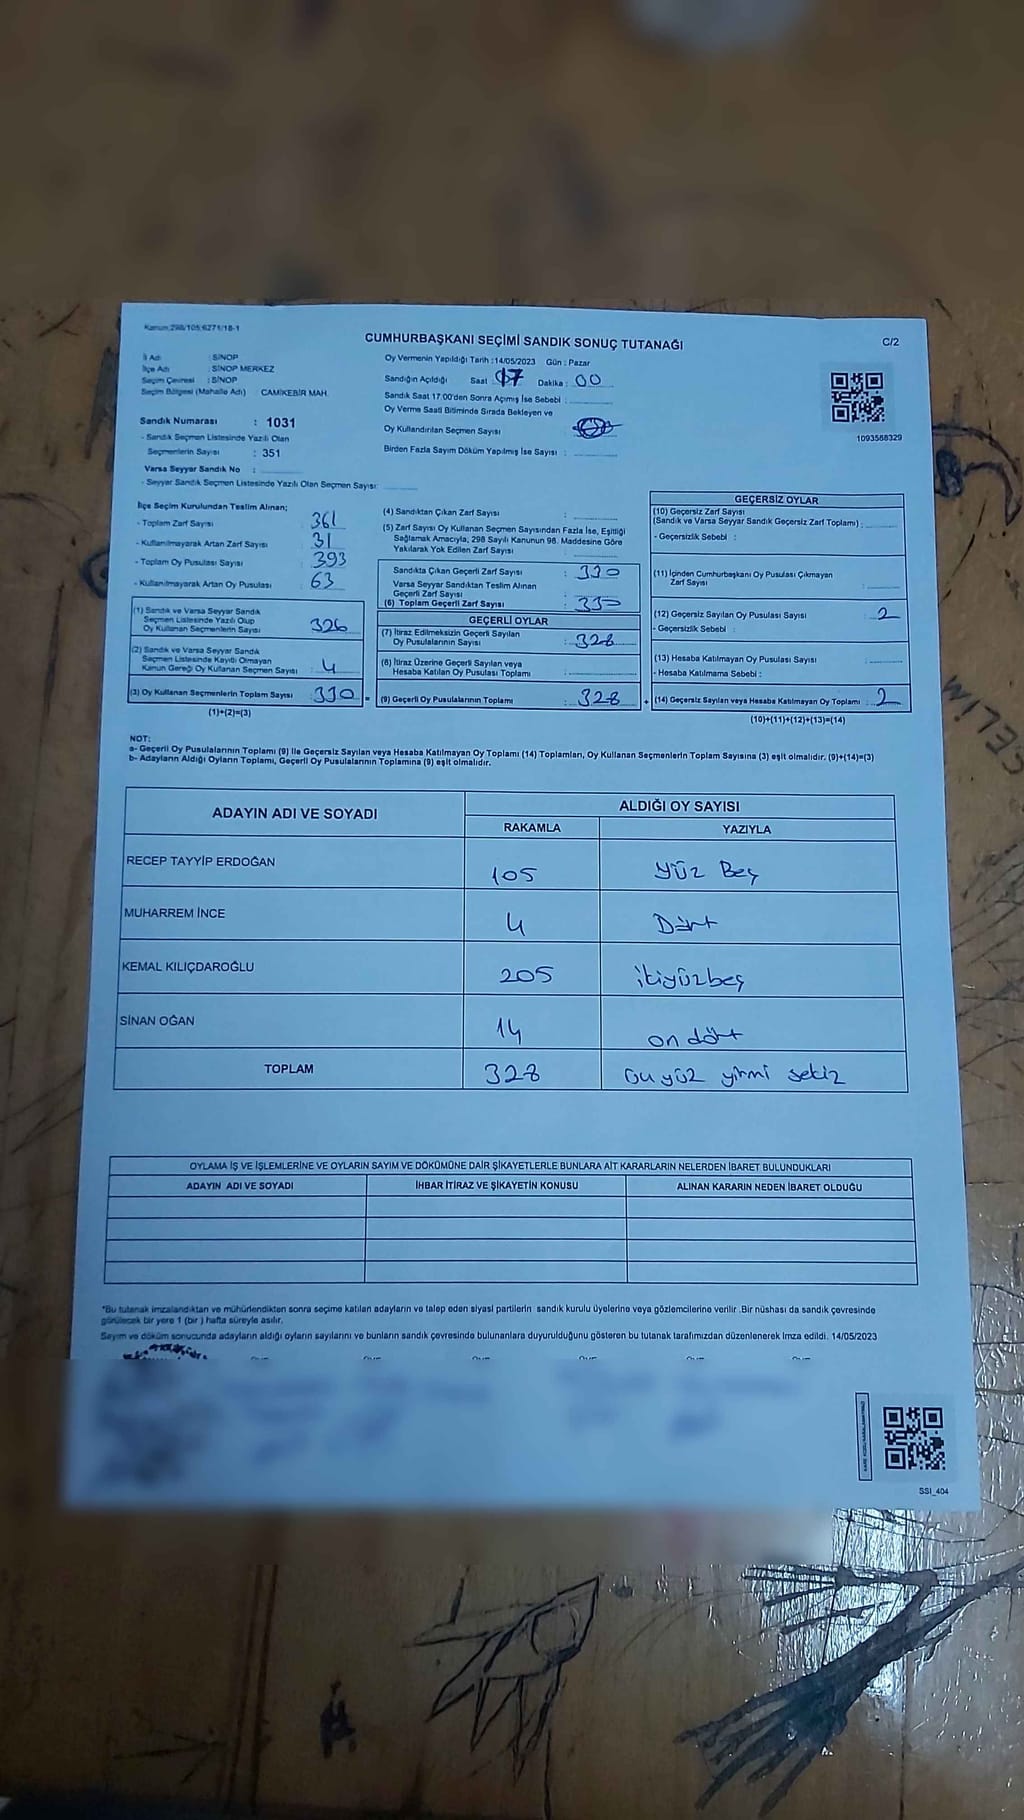 Kanun:298/105;6271/18-1
CUMHURBAŞKANI SEÇİMİ SANDIK SONUÇ TUTANAĞI
C/2
İl Adı : SİNOP
İlçe Adı : SİNOP MERKEZ
Seçim Çevresi : SİNOP
Seçim Bölgesi (Mahalle Adı) : CAMİKEBİR MAH.
Oy Vermenin Yapıldığı Tarih :14/05/2023 Gün : Pazar
Sandığın Açıldığı Saat 17 Dakika : 00
Sandık Saat 17.00'den Sonra Açımış İse Sebebi :
Oy Verme Saati Bitiminde Sırada Bekleyen ve
Oy Kullandırılan Seçmen Sayısı :
Birden Fazla Sayım Döküm Yapılmış İse Sayısı :
1093568329
Sandık Numarası : 1031
- Sandık Seçmen Listesinde Yazılı Olan
Seçmenlerin Sayısı : 351
Varsa Seyyar Sandık No :
- Seyyar Sandık Seçmen Listesinde Yazılı Olan Seçmen Sayısı:
İlçe Seçim Kurulundan Teslim Alınan;
- Toplam Zarf Sayısı : 361
- Kullanılmayarak Artan Zarf Sayısı : 31
- Toplam Oy Pusulası Sayısı : 393
- Kullanılmayarak Artan Oy Pusulası : 63
(1) Sandık ve Varsa Seyyar Sandık
Seçmen Listesinde Yazılı Olup
Oy Kullanan Seçmenlerin Sayısı 326
(2) Sandık ve Varsa Seyyar Sandık
Seçmen Listesinde Kayıtlı Olmayan
Kanun Gereği Oy Kullanan Seçmen Sayısı : 4
(3) Oy Kullanan Seçmenlerin Toplam Sayısı : 330 =
(1)+(2)=(3)
(4) Sandıktan Çıkan Zarf Sayısı :
(5) Zarf Sayısı Oy Kullanan Seçmen Sayısından Fazla İse, Eşitliği
Sağlamak Amacıyla, 298 Sayılı Kanunun 98. Maddesine Göre
Yakılarak Yok Edilen Zarf Sayısı :
Sandıkta Çıkan Geçerli Zarf Sayısı : 330
Varsa Seyyar Sandıktan Teslim Alınan
Geçerli Zarf Sayısı :
(6) Toplam Geçerli Zarf Sayısı : 330
GEÇERLİ OYLAR
(7) İtiraz Edilmeksizin Geçerli Sayılan
Oy Pusulalarının Sayısı : 328
(8) İtiraz Üzerine Geçerli Sayılan veya
Hesaba Katılan Oy Pusulası Toplamı :
(9) Geçerli Oy Pusulalarının Toplamı : 328 +
GEÇERSİZ OYLAR
(10) Geçersiz Zarf Sayısı
(Sandık ve Varsa Seyyar Sandık Geçersiz Zarf Toplamı) :
- Geçersizlik Sebebi :
(11) İçinden Cumhurbaşkanı Oy Pusulası Çıkmayan
Zarf Sayısı :
(12) Geçersiz Sayılan Oy Pusulası Sayısı : 2
- Geçersizlik Sebebi :
(13) Hesaba Katılmayan Oy Pusulası Sayısı :
- Hesaba Katılmama Sebebi :
(14) Geçersiz Sayılan veya Hesaba Katılmayan Oy Toplamı : 2
(10)+(11)+(12)+(13)=(14)
NOT:
a- Geçerli Oy Pusulalarının Toplamı (9) ile Geçersiz Sayılan veya Hesaba Katılmayan Oy Toplamı (14) Toplamları, Oy Kullanan Seçmenlerin Toplam Sayısına (3) eşit olmalıdır. (9)+(14)=(3)
b- Adayların Aldığı Oyların Toplamı, Geçerli Oy Pusulalarının Toplamına (9) eşit olmalıdır.
ADAYIN ADI VE SOYADI
ALDIĞI OY SAYISI
RAKAMLA YAZIYLA
RECEP TAYYİP ERDOĞAN 105 yüz Beş
MUHARREM İNCE 4 Dört
KEMAL KILIÇDAROĞLU 205 ikiyüzbeş
SİNAN OĞAN 14 on dört
TOPLAM 328 üç yüz yirmi sekiz
OYLAMA İŞ VE İŞLEMLERİNE VE OYLARIN SAYIM VE DÖKÜMÜNE DAİR ŞİKAYETLERLE BUNLARA AİT KARARLARIN NELERDEN İBARET BULUNDUKLARI
ADAYIN ADI VE SOYADI İHBAR İTİRAZ VE ŞİKAYETİN KONUSU ALINAN KARARIN NEDEN İBARET OLDUĞU
*Bu tutanak imzalandıktan ve mühürlendikten sonra seçime katılan adayların ve talep eden siyasi partilerin sandık kurulu üyelerine veya gözlemcilerine verilir .Bir nüshası da sandık çevresinde
görülecek bir yere 1 (bir ) hafta süreyle asılır.
Sayım ve döküm sonucunda adayların aldığı oyların sayılarını ve bunların sandık çevresinde bulunanlara duyurulduğunu gösteren bu tutanak tarafımızdan düzenlenerek imza edildi. 14/05/2023
SSI_404
CELİM